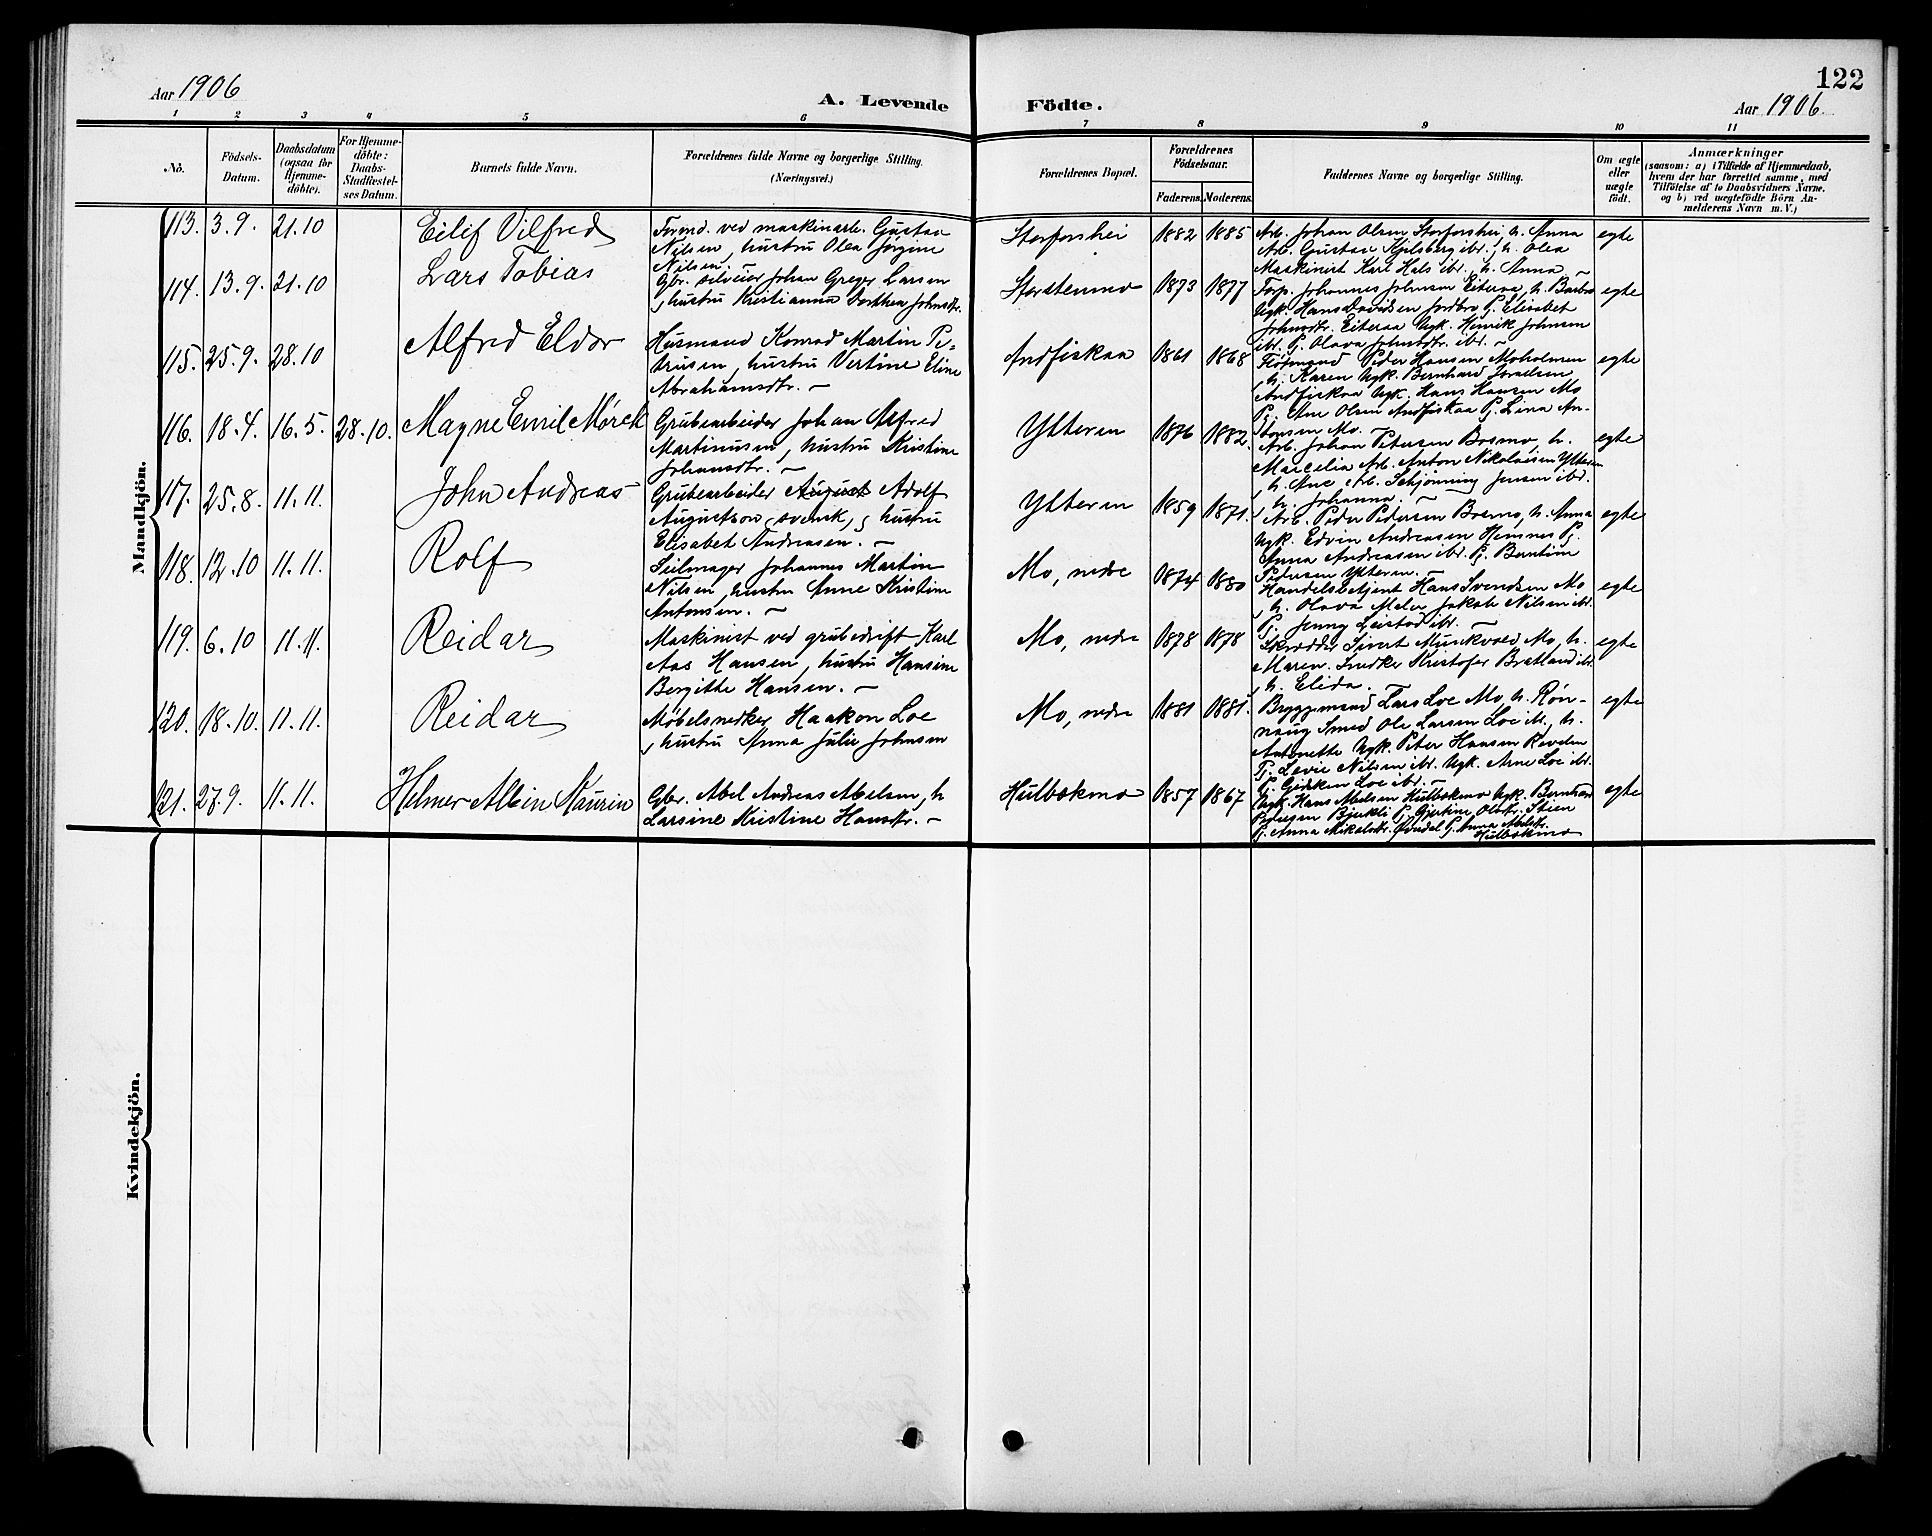 122
Aar 1906
A. Levende Födte.
Aar 1906.
1 2 3 4 5 6 7 8 9 10 11
No.
Födsels-
Datum.
Daabsdatum
(ogsaa for
Hjemme-
döbte).
For Hjemme-
döbte:
Daabs-
Stadfæstel-
ses Datum.
Barnets fulde Navn.
Forældrenes fulde Navne og borgerlige Stilling.
(Næringsvei.)
Forældrenes Bopæl.
Forældrenes
Födselsaar.
Faderens. Moderens.
Faddernes Navne og borgerlige Stilling.
Om ægte
eller
uægte
födt.
Anmærkninger
(saasom: a) i Tilfælde af Hjemmedaab,
hvem der har forrettet samme, med
Tilföielse af to Daabsvidners Navne,
og b) ved uægtefödte Börn An-
melderens Navn m. V.)
Mandkjön.
113. 3.9. 21.10 Eilif Vilfred
Formd. ved maskinarb. Gustav
Nilsen, hustru Olea Jørgine
Nilsen. –
Storforshei 1882 1885
Arb. Johan Olsen Storforshei, h. Anna
Arb. Gustav Kjelsberg ibr., h. Olea
Maskinist Karl Hals ibr., h. Anna –
egte
114. 13.9. 21.10 Lars Tobias
Gbr. selveier Johan Greger Larsen
, hustru Kristianna Dorthea Johnsdtr.
Storstenmo 1873 1877
Forp. Johannes Johnsen Eiteraa, h. Barbro
Ugk. Hans Davidsen Jordbro P. Elisabet
Johnsdtr. Eiteraa Ugk. Henrik Johnsen
ibr. P. Olava Johnsdtr. ibr. –
egte
115. 25.9. 28.10 Alfred Eldor
Husmand Konrad Martin Pe-
trusen, hustru Vertine Eline
Abrahamsdtr. –
Andfiskaa 1861 1868
Fløtmand Peder Hansen Moholmen
h. Karen Ugk. Bernhard Israelsen
Andfiskaa Ugk. Hans Hansen Mo
Pj. Ane Olsen Andfiskaa Pj. Lina An-
tonsen Mo. –
egte
116. 18.4. 16.5. 28.10. Magne Emil Mørck
Grubearbeider Johan Alfred
Martinusen, hustru Kristine
Johansdtr. –
Ytteren 1876 1882.
Arb. Johan Petersen Bosmo, h.
Marcelia Arb. Anton Nikolaisen Ytteren
, h. Ane Arb. Schjønning Jensen ibr.
, h. Johanna. –
egte
117. 25.8. 11.11. John Andreas
Grubearbeider August Adolf
Augustson, svensk, hustru
Elisabet Andreasen. –
Ytteren 1859 1871.
Arb. Peder Pedersen Bosmo, h. Anna
Ugk. Edvin Andreasen Hemnes Pj.
Anna Andreasen ibr. Pj. Berntine
Pedersen Ytteren. –
egte
118. 12.10 11.11. Rolf
Seilmager Johannes Martin
Nilsen, hustru Anne Kristine
Antonsen. –
Mo, nedre 1874 1880
Handelsbetjent Hans Svendsen Mo
, h. Olava Maler Jakob Nilsen ibr.
Pj. Jenny Leistad ibr. –
egte
119. 6.10 11.11. Reidar
Maskinist ved grubedrift Karl
Aas Hansen, hustru Hansine
Bergitte Hansen. –
Mo, nedre 1878 1878
Skrædder Sivert Munkvold Mo, h.
Maren. Snedker Kristofer Bratland ibr.
, h. Elida. –
egte
120. 18.10. 11.11. Reidar
Møbelsnedker Haakon Loe
, hustru Anna Julie Johnsen
Mo, nedre 1881 1881.
Bryggemand Lars Loe Mo, h. Røn-
naug Smed Ole Larsen Loe ib., h.
Antonette Ugk. Peter Hansen Revelen
Pj. Levie Nilsen ibr. Ugk. Arne Loe ibr.
Pj. Gjertine Loe ibr. –
egte
121. 27.9. 11.11. Helmer Albin Kaurin
Gbr. Abel Andreas Abelsen, h
Larsine Kristine Hansdtr. –
Hulbækmo 1857 1867
Ugk. Hans Abelsen Hulbækmo Ugk. Bernhard
Petersen Bjerkli P. Gjertine Olsdtr. Stien
Pj. Anna Mikalsdtr. Øvredal P. Anna Abelsdtr.
Hulbækmo
egte
Kvindekjön.